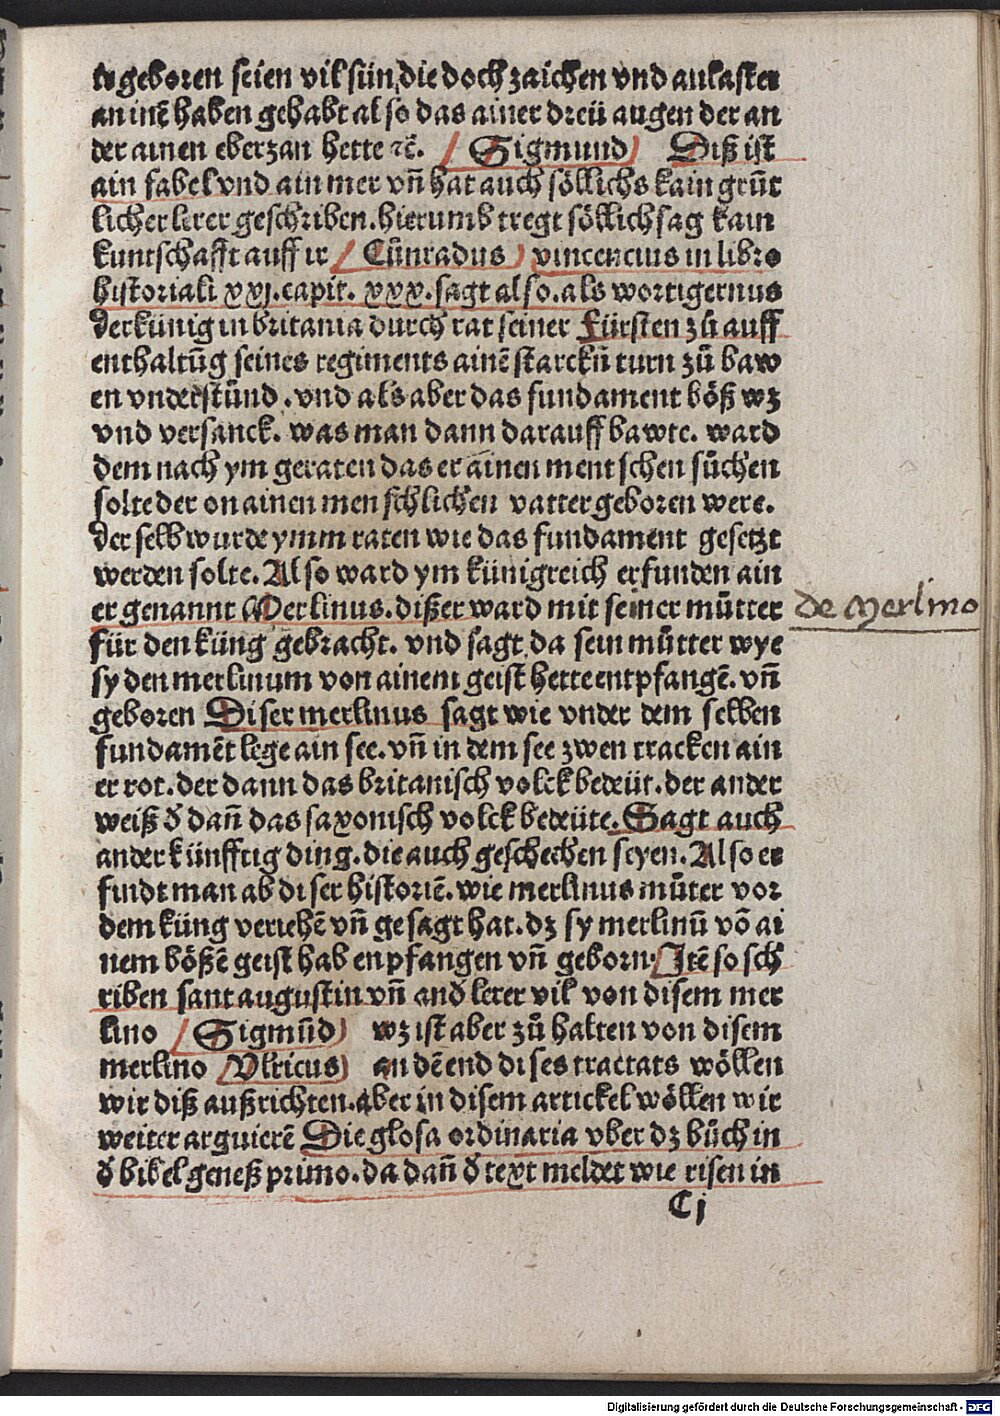 te geboren seien vil sün, die doch zaichen vnd anlaster
an inē haben gehabt also das ainer dreü augen der an
der ainen eberzan hette ⁊c̄. Sigmund Diß ist
ain fabel vnd ain mer vn̄ hat auch söllichs kain grūt
licher lerer geschriben. hierumb tregt söllich sag kain
kuntschafft auff ir Cůnradus vincencius in libro
historiali xxj. capit. xxx. sagt also. als wortigernus
der künig in britania durch rat seiner Fürsten zů auff
enthaltūg seines regiments ainē starckn̄ turn zů baw
en vnderstůnd. vnd als aber das fundament böß wz
vnd versanck. was man dann darauff bawte. ward
dem nach ym geraten das er ainen mentschen sůchen
solte der on ainen menschlichen vatter geboren were.
der selb wurde ymm raten wie das fundament gesetzt
werden solte. Also ward ym künigreich erfunden ain
er genannt Merlinus. dißer ward mit seiner můtter
für den küng gebracht. vnd sagt da sein můtter wye
sy den merlinum von ainem geist hette entpfangē. vn̄
geboren Diser merlinus sagt wie vnder dem selben
fundamēt lege ain see. vn̄ in dem see zwen tracken ain
er rot. der dann das britanisch volck bedeüt. der ander
weiß ð dan̄ das saxonisch volck bedeüte. Sagt auch
ander künfftig ding. die auch geschechen seyen. Also er
findt man ab diser historiē. wie merlinus můter vor
dem küng veriehē vn̄ gesagt hat. dz sy merlinū vō ai
nem bößē geist hab enpfangen vn̄ geborn. Itē so sch
riben sant augustin vn̄ anð lerer vil von disem mer
lino Sigmūd wz ist aber zů halten von disem
merlino Vlricus an dē end dises tractats wöllen
wir diß außrichten. aber in disem artickel wöllen wir
weiter arguierē Die glosa ordinaria vber dz bůch in
ð bibel geneß primo. da dan̄ ð text meldet wie risen in
Cj
de Merlino
Digitalisierung gefördert durch die Deutsche Forschungsgemeinschaft - DFG